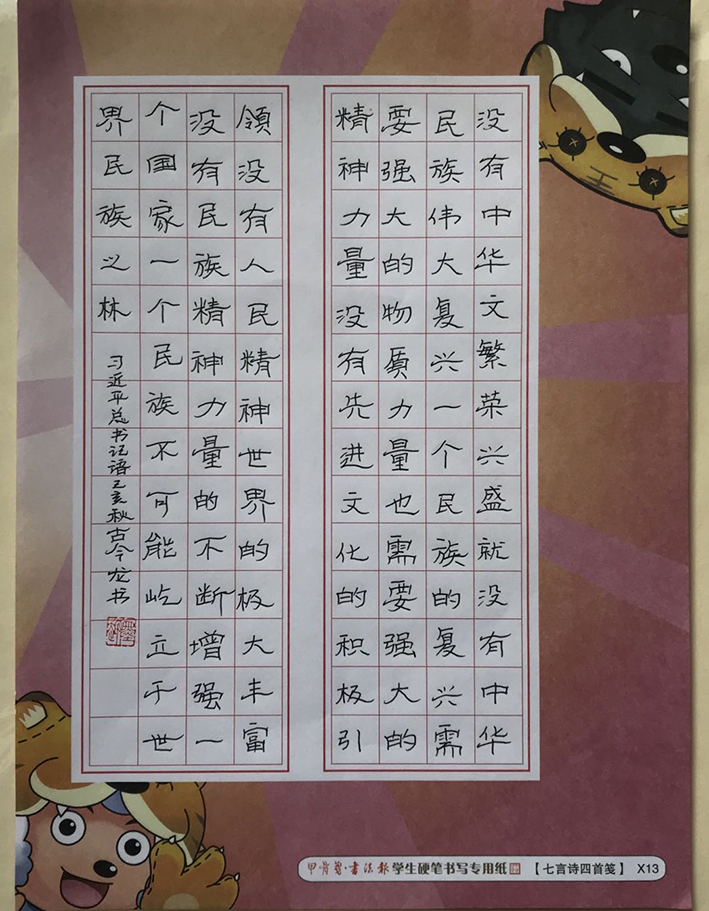 没有中华文繁荣兴盛就没有中华
民族伟大复兴一个民族的复兴需
要强大的物质力量也需要强大的
精神力量没有先进文化的积极引
領没有人民精神世界的极大丰富
没有民族精神力量的不断增强一
个国家一个民族不可能屹立于世
界民族之林
习近平总书记语己亥秋古今龙书
甲骨文·书法报 学生硬笔书写专用纸
【七言诗四首笺】 X13